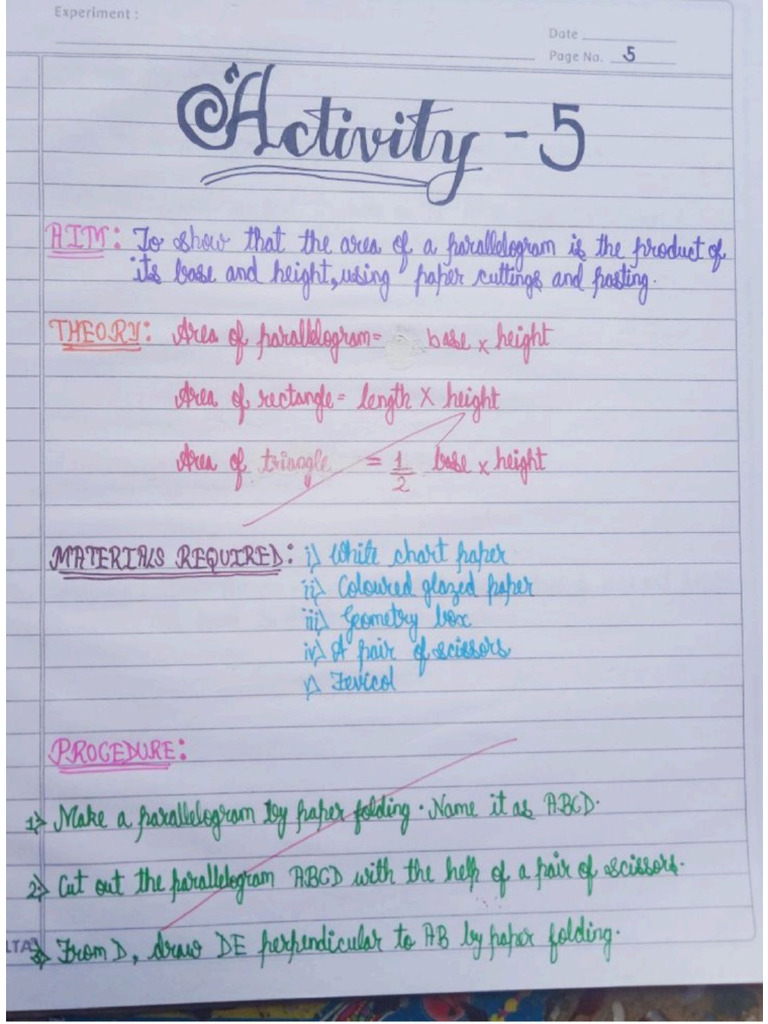 Experiment :
Date
Page No. 5
Activity - 5
AIM: To show that the area of a parallelogram is the product of
its base and height, using paper cuttings and pasting.
THEORY: Area of parallelogram= base x height
Area of rectangle= length X height
Area of triangle = 1/2 base x height
MATERIALS REQUIRED: i) White chart paper
ii) Coloured glazed paper
iii) Geometry box
iv) A pair of scissors
v) Fevicol
PROCEDURE:
1) Make a parallelogram by paper folding. Name it as ABCD.
2) Cut out the parallelogram ABCD with the help of a pair of scissors.
3) From D, draw DE perpendicular to AB by paper folding.